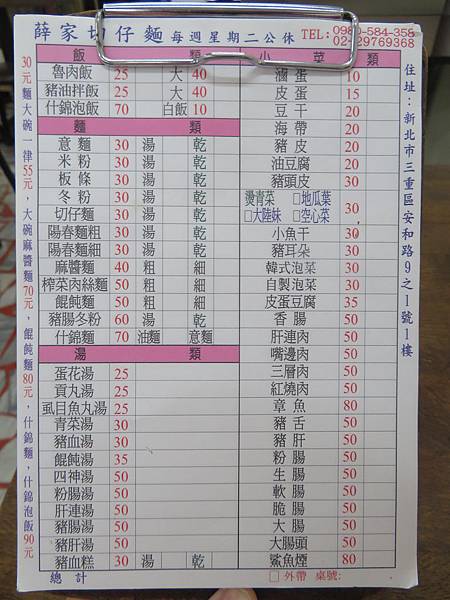 薛家切仔麵 每週星期二公休 TEL: 0980-584-358
02-29769368
飯 類
魯肉飯 25 大 40
豬油拌飯 25 大 40
什錦泡飯 70 白飯 10
麵 類
意麵 30 湯 乾
米粉 30 湯 乾
板條 30 湯 乾
冬粉 30 湯 乾
切仔麵 30 湯 乾
陽春麵粗 30 湯 乾
陽春麵細 30 湯 乾
麻醬麵 40 粗 細
榨菜肉絲麵 50 粗 細
餛飩麵 50 粗 細
豬腸冬粉 60 湯 乾
什錦麵 70 油麵 意麵
湯 類
蛋花湯 25
貢丸湯 25
虱目魚丸湯 25
青菜湯 30
豬血湯 30
餛飩湯 35
四神湯 50
粉腸湯 50
肝連湯 50
豬腸湯 50
豬肝湯 50
豬血糕 30 湯 乾
總計
小菜類
滷蛋 10
皮蛋 15
豆干 20
海帶 20
豬皮 20
油豆腐 20
豬頭皮 30
燙青菜 □地瓜葉
□大陸妹 □空心菜 30
小魚干 30
豬耳朵 30
韓式泡菜 30
自製泡菜 30
皮蛋豆腐 35
香腸 50
肝連肉 50
嘴邊肉 50
三層肉 50
紅燒肉 50
章魚 80
豬舌 50
豬肝 50
粉腸 50
生腸 50
軟腸 50
脆腸 50
大腸 50
大腸頭 50
鯊魚煙 80
□外帶 桌號:
30元麵大碗一律55元,大碗麻醬麵70元,餛飩麵80元,什錦麵,什錦泡飯90元
住址:新北市三重區安和路9之1號1樓